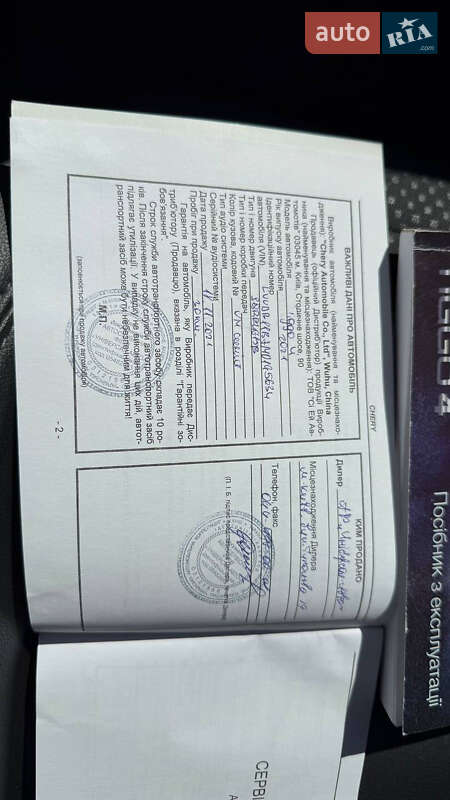 auto RIA.com
CHERY
ВАЖЛИВІ ДАНІ ПРО АВТОМОБІЛЬ
Виробник автомобіля (найменування та місцезнахо-
дження): "Chery Automobile Co., Ltd", Wuhu, China
Продавець (офіційний Дистриб'ютор) продукції Вироб-
ника (найменування та місцезнаходження): ТОВ "Сі Ей Ав-
томотів" 03045 м. Київ, Столичне шосе, 90
Модель автомобіля
Рік випуску автомобіля 2021
Ідентифікаційний номер
автомобіля (VIN)
Тип і номер двигуна
Тип і номер коробки передач
Колір кузова, кодовий №
Тип аудіо системи
Серійний № аудіосистеми
Дата продажу 2021
Пробіг при продажу
Гарантія на автомобіль, яку Виробник передає Дис-
триб'ютору (Продавцю), вказана в розділі "Гарантійні зо-
бов'язання".
Строк служби автотранспортного засобу складає 10 ро-
ків. Після закінчення строку служби автотранспортний засіб
підлягає утилізації. У випадку не виконання цих дій, автот-
ранспортний засіб може бути небезпечним для життя.
М.П.
(заповнюється при продажу автомобіля)
- 2 -
КИМ ПРОДАНО
Дилер
Місцезнаходження Дилера
Телефон, факс
(П. І. Б. підпис
TIGGO 4
Посібник з експлуатації
СЕРВІ